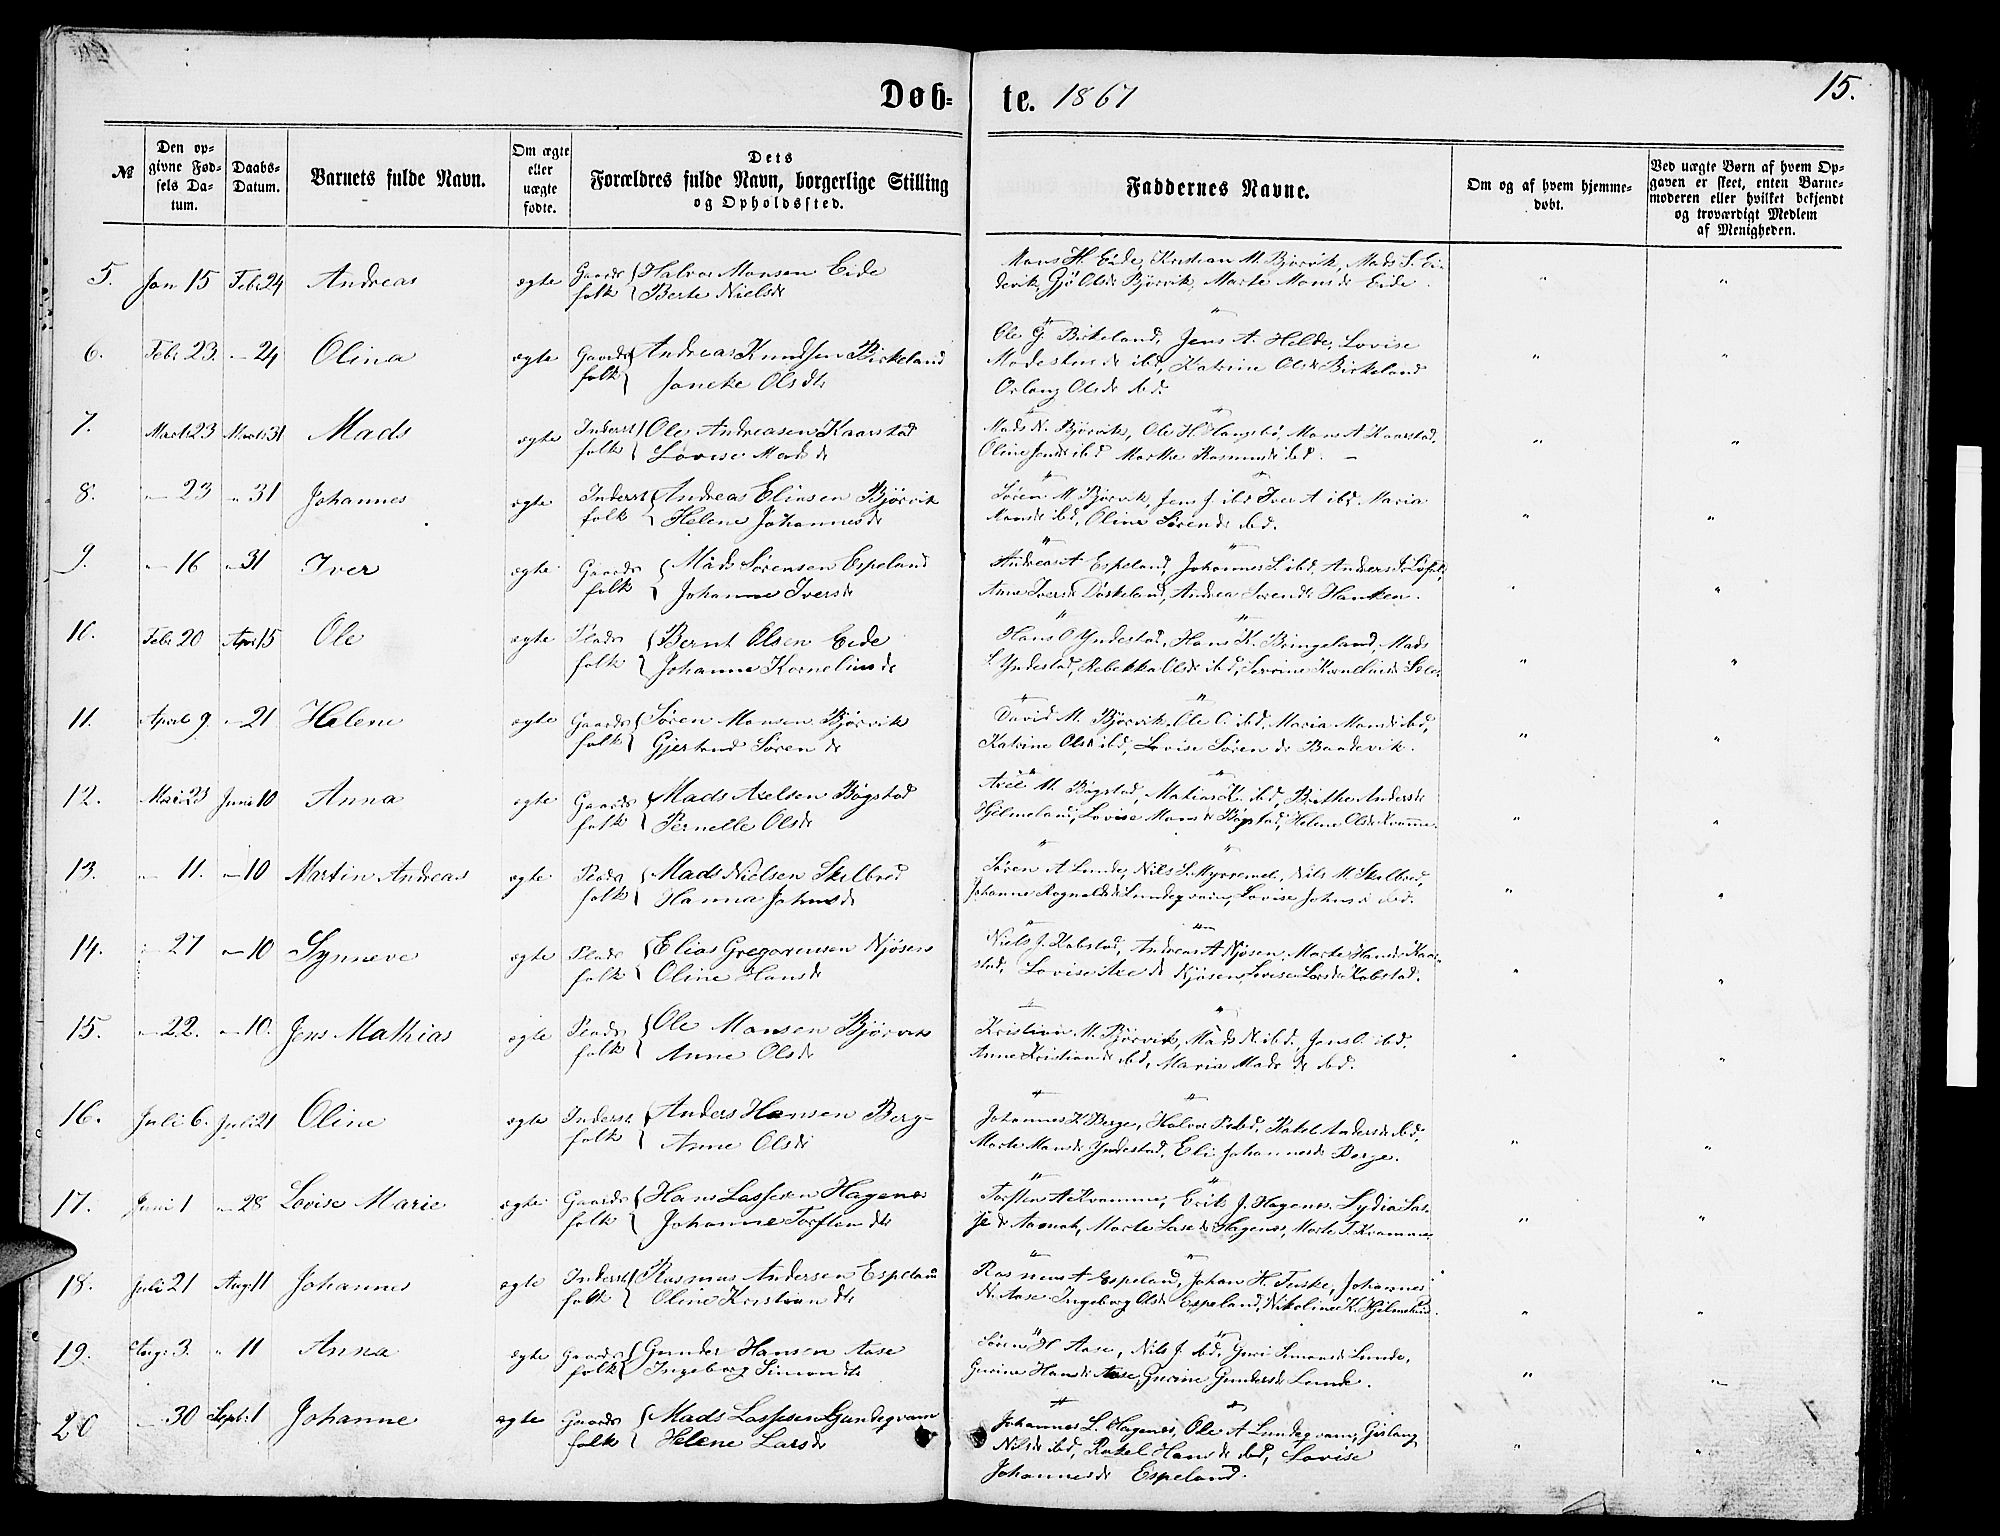 Døb=te. 1867
15.
№
Den opgivne Fødsels Datum.
Daabs-Datum.
Barnets fulde Navn.
Om ægte eller uægte fødte.
Dets Forældres fulde Navn, borgerlige Stilling og Opholdssted.
Faddernes Navne.
Om og af hvem hjemmedøbt.
Ved uægte Børn af hvem Opgaven er skeet, enten Barnemoderen eller hvilket bekjendt og troværdigt Medlem af Menigheden.
5. Jan 15 Febr 24 Andreas ægte Gaards folk { Halvor Monsen Eide
Berte Nielsdr
Mons H. Eide, Kristian M. Bjørvik, Mads S. Ei-
devik, Olsdr Bjørvik, Marte Monsdr Eide.
6. Febr 23. " 24 Olina ægte Gaards folk { Andreas Knudsen Birkeland
Olsdtr
Ole G. Birkeland, Jens A. Helde, Lovise
ibd, Katrine Olsdr Birkeland
Olsdr ibd.
7. Marts 23 Marts 31 Mads ægte Inderst folk { Ole Andreasen Kaarstad
Lovise Madsdr
Mads N. Bjørvik, Ole H. Mons A Kaarstad,
Oline ibd Marthe Rasmusdr ibd.
8. " 23 " 31 Johannes ægte Inderst folk { Andreas Eliasen Bjørvik
Helene Johannesdr
Søren M Bjørvik, Jens J. ibd Iver A ibd, Maria
Monsdr ibd, Oline Sørensdr ibd.
9. " 16 " 31 Iver ægte Gaards folk { Mads Sørensen Espeland
Johanne Iversdr
Andreas A Espeland, Johannes S. ibd, Anders
Anne Iversdr Døskeland, Andrea Sørensdr
10. Febr 20 Apr 15 Ole ægte Plads folk { Bernt Olsen Eide
Johanne Korneliusdr
Hans O Yndestad, Hans K. Bringeland, Mads
S. Yndestad, Rebekka Olsdr ibd, Korneliusdr
11. April 9 " 21 Helene ægte Gaards folk { Søren Monsen Bjørvik
Gjertrud Sørensdr
David M. Bjørvik, Ole O. ibd, Maria Monsdr ibd,
Katrine Olsdr ibd, Lovise Sørensdr
12. Mai 23 Juni 10 Anna ægte Gaards folk { Mads Axelsen Bøgstad
Pernelle Olsdr
Axel M. Bøgstad, Mathias K. ibd, Birthe Andersdr
Hjelmeland, Lovise Monsdr Bøgstad, Helene Olsdr Kvamme.
13. " 11. " 10 Martin Andreas ægte Plads folk { Mads Nielsen Skilbred
Hanna Johnsdr
Søren A Lunde, Nils S. Nils M. Skilbred,
Johanne Ragnaldsdr Lundeqvam, Lovise Johnsdr ibd.
14. " 27 " 10 Synneve ægte Plads folk { Elias Gregoriusen Njøsen
Oline Hansdr
Niels J. Kobstad, Andreas A Njøsen, Marte Hansdr Kaar-
stad, Lovise Njøsen, Lovise Larsdr Kobstad.
15. " 22. " 10. Jens Mathias ægte Plads folk { Ole Monsen Bjørvik
Anne Olsdr
Kristian M. Bjørvik, Mads N. ibd, Jens O. ibd.
Anne Kristiansdr ibd, Maria Madsdr ibd.
16. Juli 6. Juli 21 Oline ægte Inderst folk { Anders Hansen Berg-
Anne Olsdr
Johannes K Berge, Halvor ibd, Rakel Andersdr ibd,
Marte Monsdr Yndestad, Eli Johannesdr Berge.
17. Juni 1 " 28 Lovise Marie ægte Gaards folk { Hans Lassesen Hagenes
Johanne Torstensdtr
Torsten A Kvamme, Erik J. Hagenes. Lydia Las-
sedr Aamot, Marte Lasedr Hagenes, Marte T. Kvamme
18. Juli 21 Aug 11 Johannes ægte Inderst folk { Rasmus Andersen Espeland
Oline Kristiansdtr
Rasmus A Espeland, Johan H. Johannes
N. Aase Ingeborg Olsdr Espeland, Nikoline K. Hjelmeland.
19. Aug 3. " 11 Anna ægte Gaards folk { Gunder Hansen Aase
Ingeborg Simonsdtr
Søren H Aase, Nils J ibd, Guri Simonsdr Lunde,
Gurine Hansdr Aase, Gurine Gundersdr Lunde.
20 " 30 Sept 1 Johanne ægte Gaards folk { Mads Lassesen Lundeqvam
Helene Larsdr
Johannes L. Hagenes, Ole A Lundeqvam,
Nilsdr ibd, Rakel Hansdr ibd, Lovise
Johannesdr Espeland.